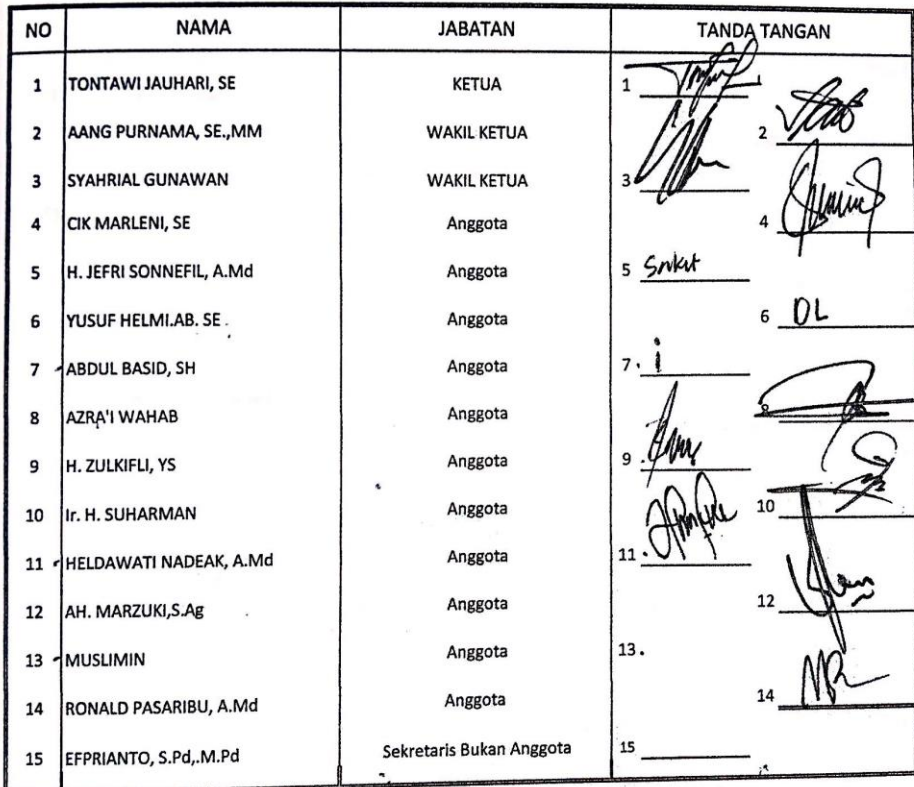 NO NAMA JABATAN TANDA TANGAN
1 TONTAWI JAUHARI, SE KETUA 1
2 AANG PURNAMA, SE.,MM WAKIL KETUA 2
3 SYAHRIAL GUNAWAN WAKIL KETUA 3
4 CIK MARLENI, SE Anggota 4
5 H. JEFRI SONNEFIL, A.Md Anggota 5 Sakit
6 YUSUF HELMI.AB. SE. Anggota 6 DL
7 ABDUL BASID, SH Anggota 7. i
8 AZRA'I WAHAB Anggota 8
9 H. ZULKIFLI, YS Anggota 9.
10 Ir. H. SUHARMAN Anggota 10
11 HELDAWATI NADEAK, A.Md Anggota 11.
12 AH. MARZUKI,S.Ag Anggota 12
13 MUSLIMIN Anggota 13.
14 RONALD PASARIBU, A.Md Anggota 14
15 EFPRIANTO, S.Pd,.M.Pd Sekretaris Bukan Anggota 15